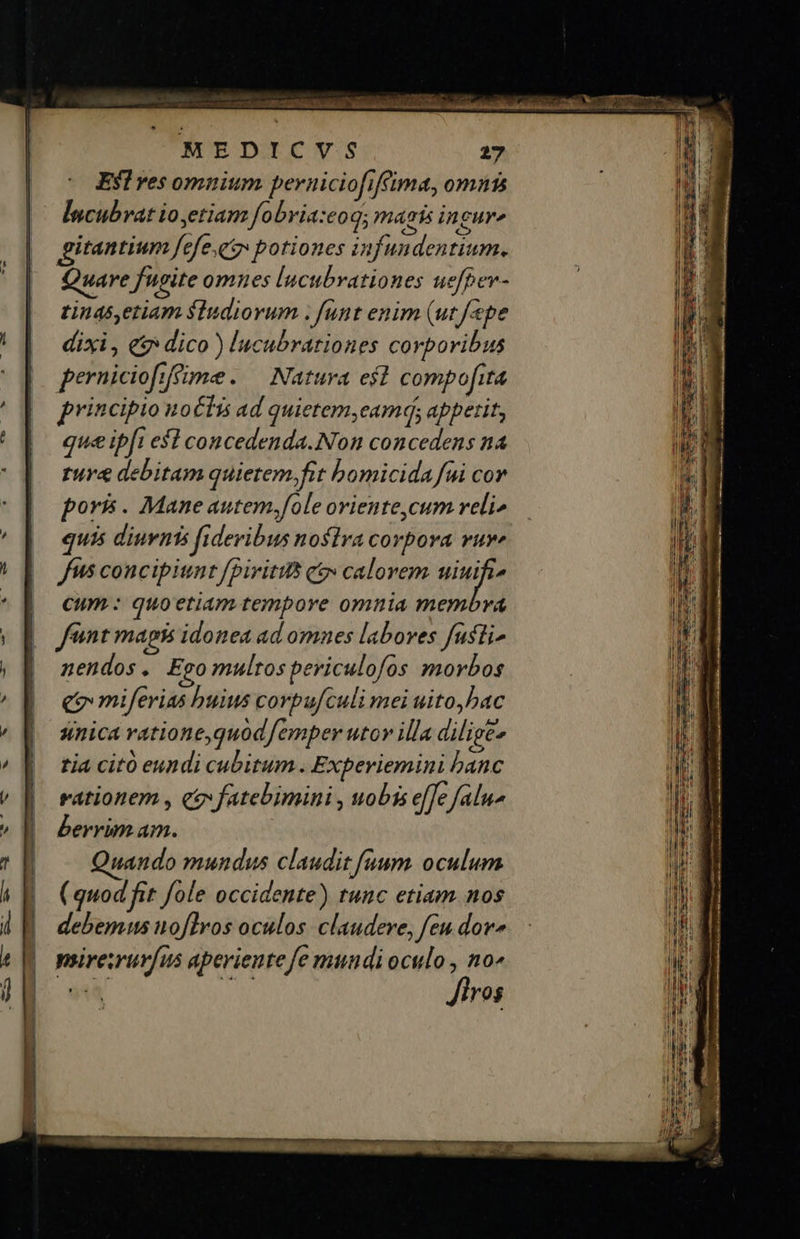 MEDICVS 27
Est res omnium perniciosissima, omnis
lucubratio, etiam sobria: eoq; magis ingur-
gitantium sese, & potiones infundentium.
Quare fugite omnes lucubrationes uesper-
tinas, etiam studiorum: sunt enim (ut sæpe
dixi, & dico) lucubrationes corporibus
perniciosissimæ. Natura est composita
principio noctis ad quietem, eamq; appetit,
quæ ipsi est concedenda. Non concedens na
turæ debitam quietem, fit homicida sui cor
poris. Mane autem, sole oriente, cum reli-
quis diurnis sideribus nostra corpora rur-
sus concipiunt spiritũ & calorem uiuifi-
cum: quo etiam tempore omnia membra
sunt magis idonea ad omnes labores susti-
nendos. Ego multos periculosos morbos
& miserias huius corpusculi mei uito, hac
unica ratione, quòd semper utor illa diligẽ-
tia citò eundi cubitum. Experiemini hanc
rationem, & fatebimini, uobis esse salu-
berrimam.
Quando mundus claudit suum oculum
(quod fit sole occidente) tunc etiam nos
debemus nostros oculos claudere, seu dor-
mire: rursus aperiente se mundi oculo, no-
stros